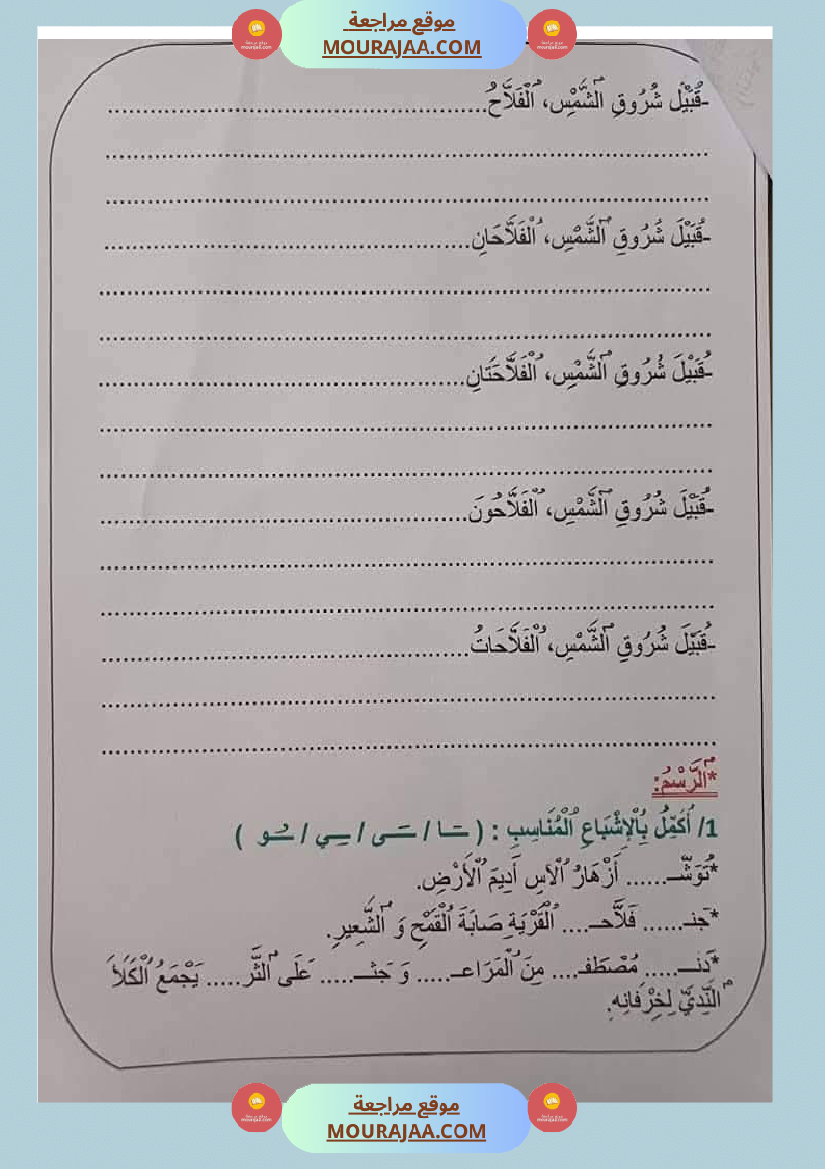 موقع مراجعة
MOURAJAA.COM
-قُبَيْلَ شُرُوقِ ٱلشَّمْسِ، ٱلْفَلَّاحُ......................................................
......................................................................................
......................................................................................
-قُبَيْلَ شُرُوقِ ٱلشَّمْسِ، ٱلْفَلَّاحَانِ....................................................
......................................................................................
......................................................................................
-قُبَيْلَ شُرُوقِ ٱلشَّمْسِ، ٱلْفَلَّاحَتَانِ....................................................
......................................................................................
......................................................................................
-قُبَيْلَ شُرُوقِ ٱلشَّمْسِ، ٱلْفَلَّاحُونَ....................................................
......................................................................................
......................................................................................
-قُبَيْلَ شُرُوقِ ٱلشَّمْسِ، ٱلْفَلَّاحَاتُ....................................................
......................................................................................
......................................................................................
*ٱلرَّسْمُ:
1/ أُكَمِّلُ بِٱلْإِشْبَاعِ ٱلْمُنَاسِبِ : ( ـَـا / ـَـى / ـِـي / ـُـو )
*تُوَشّـــ...... أَزْهَارُ ٱلْآسِ أَدِيمَ ٱلْأَرْضِ.
*جَنـ...... فَلَّاحـ.... ٱلْقَرْيَةِ صَابَةَ ٱلْقَمْحِ وَ ٱلشَّعِيرِ.
*دَنـــ..... مُصْطَفـ.... مِنَ ٱلْمَرَاعـ..... وَ جَثـــ..... عَلَى ٱلثَّر..... يَجْمَعُ ٱلْكَلَأَ
ٱلنَّدِيَّ لِخِرْفَانِهِ.
موقع مراجعة
MOURAJAA.COM